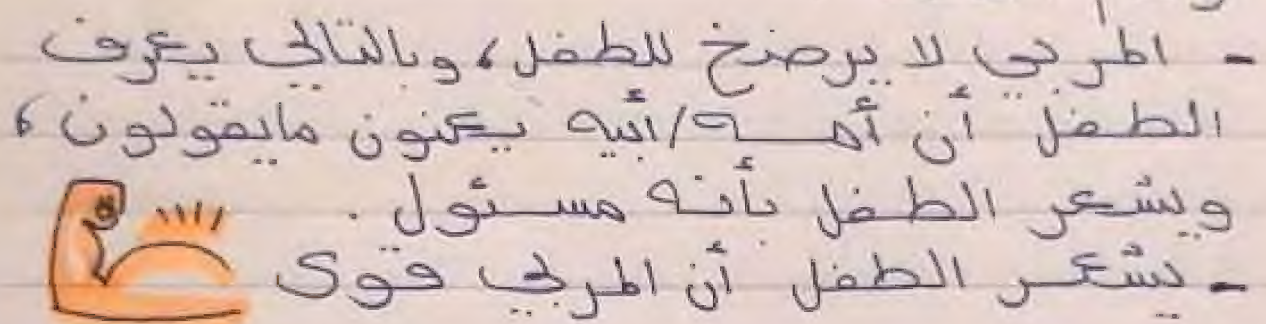 - المربي لا يرضخ للطفل، وبالتالي يعرف
الطفل أن أمه/أبيه يعنون مايقولون،
ويشعر الطفل بأنه مسئول.
- يشعر الطفل أن المربي قوى